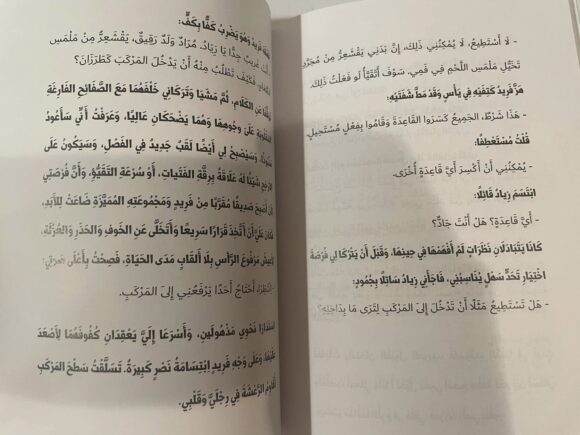 - لَا أَسْتَطِيعُ، لَا يُمْكِنُنِي ذَلِكَ، إِنَّ بَدَنِي يَقْشَعِرُّ مِنْ مُجَرَّدِ
تَخَيُّلِ مَلْمَسِ اللَّحْمِ فِي فَمِي. سَوْفَ أَتَقَيَّأُ لَو فَعَلْتُ ذَلِكَ.
هَزَّ فَرِيدُ كَتِفَيْهِ فِي يَأْسٍ وَقَدْ مَطَّ شَفَتَيْهِ:
- هَذَا شَرْطٌ، الجَمِيعُ كَسَرُوا القَاعِدَةَ وَقَامُوا بِفِعْلٍ مُسْتَحِيلٍ.
قُلْتُ مُسْتَعْطِفًا:
- يُمْكِنُنِي أَنْ أَكْسِرَ أَيَّ قَاعِدَةٍ أُخْرَى.
ابْتَسَمَ زِيَادُ قَائِلًا:
- أَيَّ قَاعِدَةٍ؟ هَلْ أَنْتَ جَادٌّ؟
كَانَا يَتَبَادَلَانِ نَظَرَاتٍ لَمْ أَفْهَمْهَا فِي حِينِهَا، وَقَبْلَ أَنْ يَتْرُكَا لِي فُرْصَةَ
اخْتِيَارِ تَحَدٍّ سَهْلٍ يُنَاسِبُنِي، فَاجَأَنِي زِيَادُ سَائِلًا بِجُمُودٍ:
- هَلْ تَسْتَطِيعُ مَثَلًا أَنْ تَدْخُلَ إِلَى المَرْكَبِ لِتَرَى مَا بِدَاخِلِهِ؟
فَرِيدُ وَهُوَ يَضْرِبُ كَفًّا بِكَفٍّ:
غَرِيبٌ جِدًّا يَا زِيَادُ. مُرَادُ وَلَدٌ رَقِيقٌ، يَقْشَعِرُّ مِنْ مَلْمَسِ
فَكَيْفَ تَطْلُبُ مِنْهُ أَنْ يَدْخُلَ المَرْكَبَ كَطَرَزَانَ؟
عَنِ الكَلَامِ، ثُمَّ مَشَيَا وَتَرَكَانِي خَلْفَهُمَا مَعَ الصَّفَائِحِ الفَارِغَةِ
عَلَى وُجُوهِهَا وَهُمَا يَضْحَكَانِ عَالِيًا، وَعَرَفْتُ أَنِّي سَأَعُودُ
وَسَيُصْبِحُ لِي أَيْضًا لَقَبٌ جَدِيدٌ فِي الفَصْلِ، وَسَيَكُونُ عَلَى
شَيْئًا لَهُ عَلَاقَةٌ بِرِقَّةِ الفَتَيَاتِ، أَوْ سُرْعَةِ التَّقَيُّؤِ، وَأَنَّ فُرْصَتِي
أَنْ أُصْبِحَ صَدِيقًا مُقَرَّبًا مِنْ فَرِيدٍ وَمَجْمُوعَتِهِ المُمَيَّزَةِ ضَاعَتْ لِلأَبَدِ.
فَكَانَ عَلَيَّ أَنْ أَتَّخِذَ قَرَارًا سَرِيعًا وَأَتَخَلَّى عَنِ الخَوفِ وَالحَذَرِ وَالعُزْلَةِ،
لِأَعِيشَ مَرْفُوعَ الرَّأْسِ بِلَا أَلْقَابٍ مَدَى الحَيَاةِ، فَصِحْتُ بِأَعْلَى صَوْتِي:
انْتَظِرَا، أَحْتَاجُ أَحَدًا يَرْفَعُنِي إِلَى المَرْكَبِ.
اسْتَدَارَا نَحْوِي مَذْهُولَينِ، وَأَسْرَعَا إِلَيَّ يَعْقِدَانِ كُفُوفَهُمَا لِأَصْعَدَ
عَلَيْهَا، وَعَلَى وَجْهِ فَرِيدٍ ابْتِسَامَةُ نَصْرٍ كَبِيرَةٌ. تَسَلَّقْتُ سَطْحَ المَرْكَبِ
أُقَاوِمُ الرَّعْشَةَ فِي رِجْلَيَّ وَقَلْبِي.